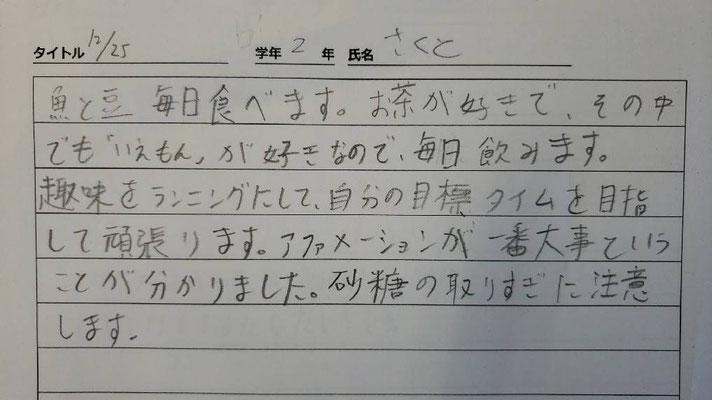 タイトル 12/25 学年 2 年 氏名 さくと
魚と豆 毎日食べます。お茶が好きで、その中
でも「いえもん」が好きなので、毎日飲みます。
趣味をランニングにして、自分の目標タイムを目指
して頑張ります。アファメーションが一番大事という
ことが分かりました。砂糖の取りすぎに注意
します。